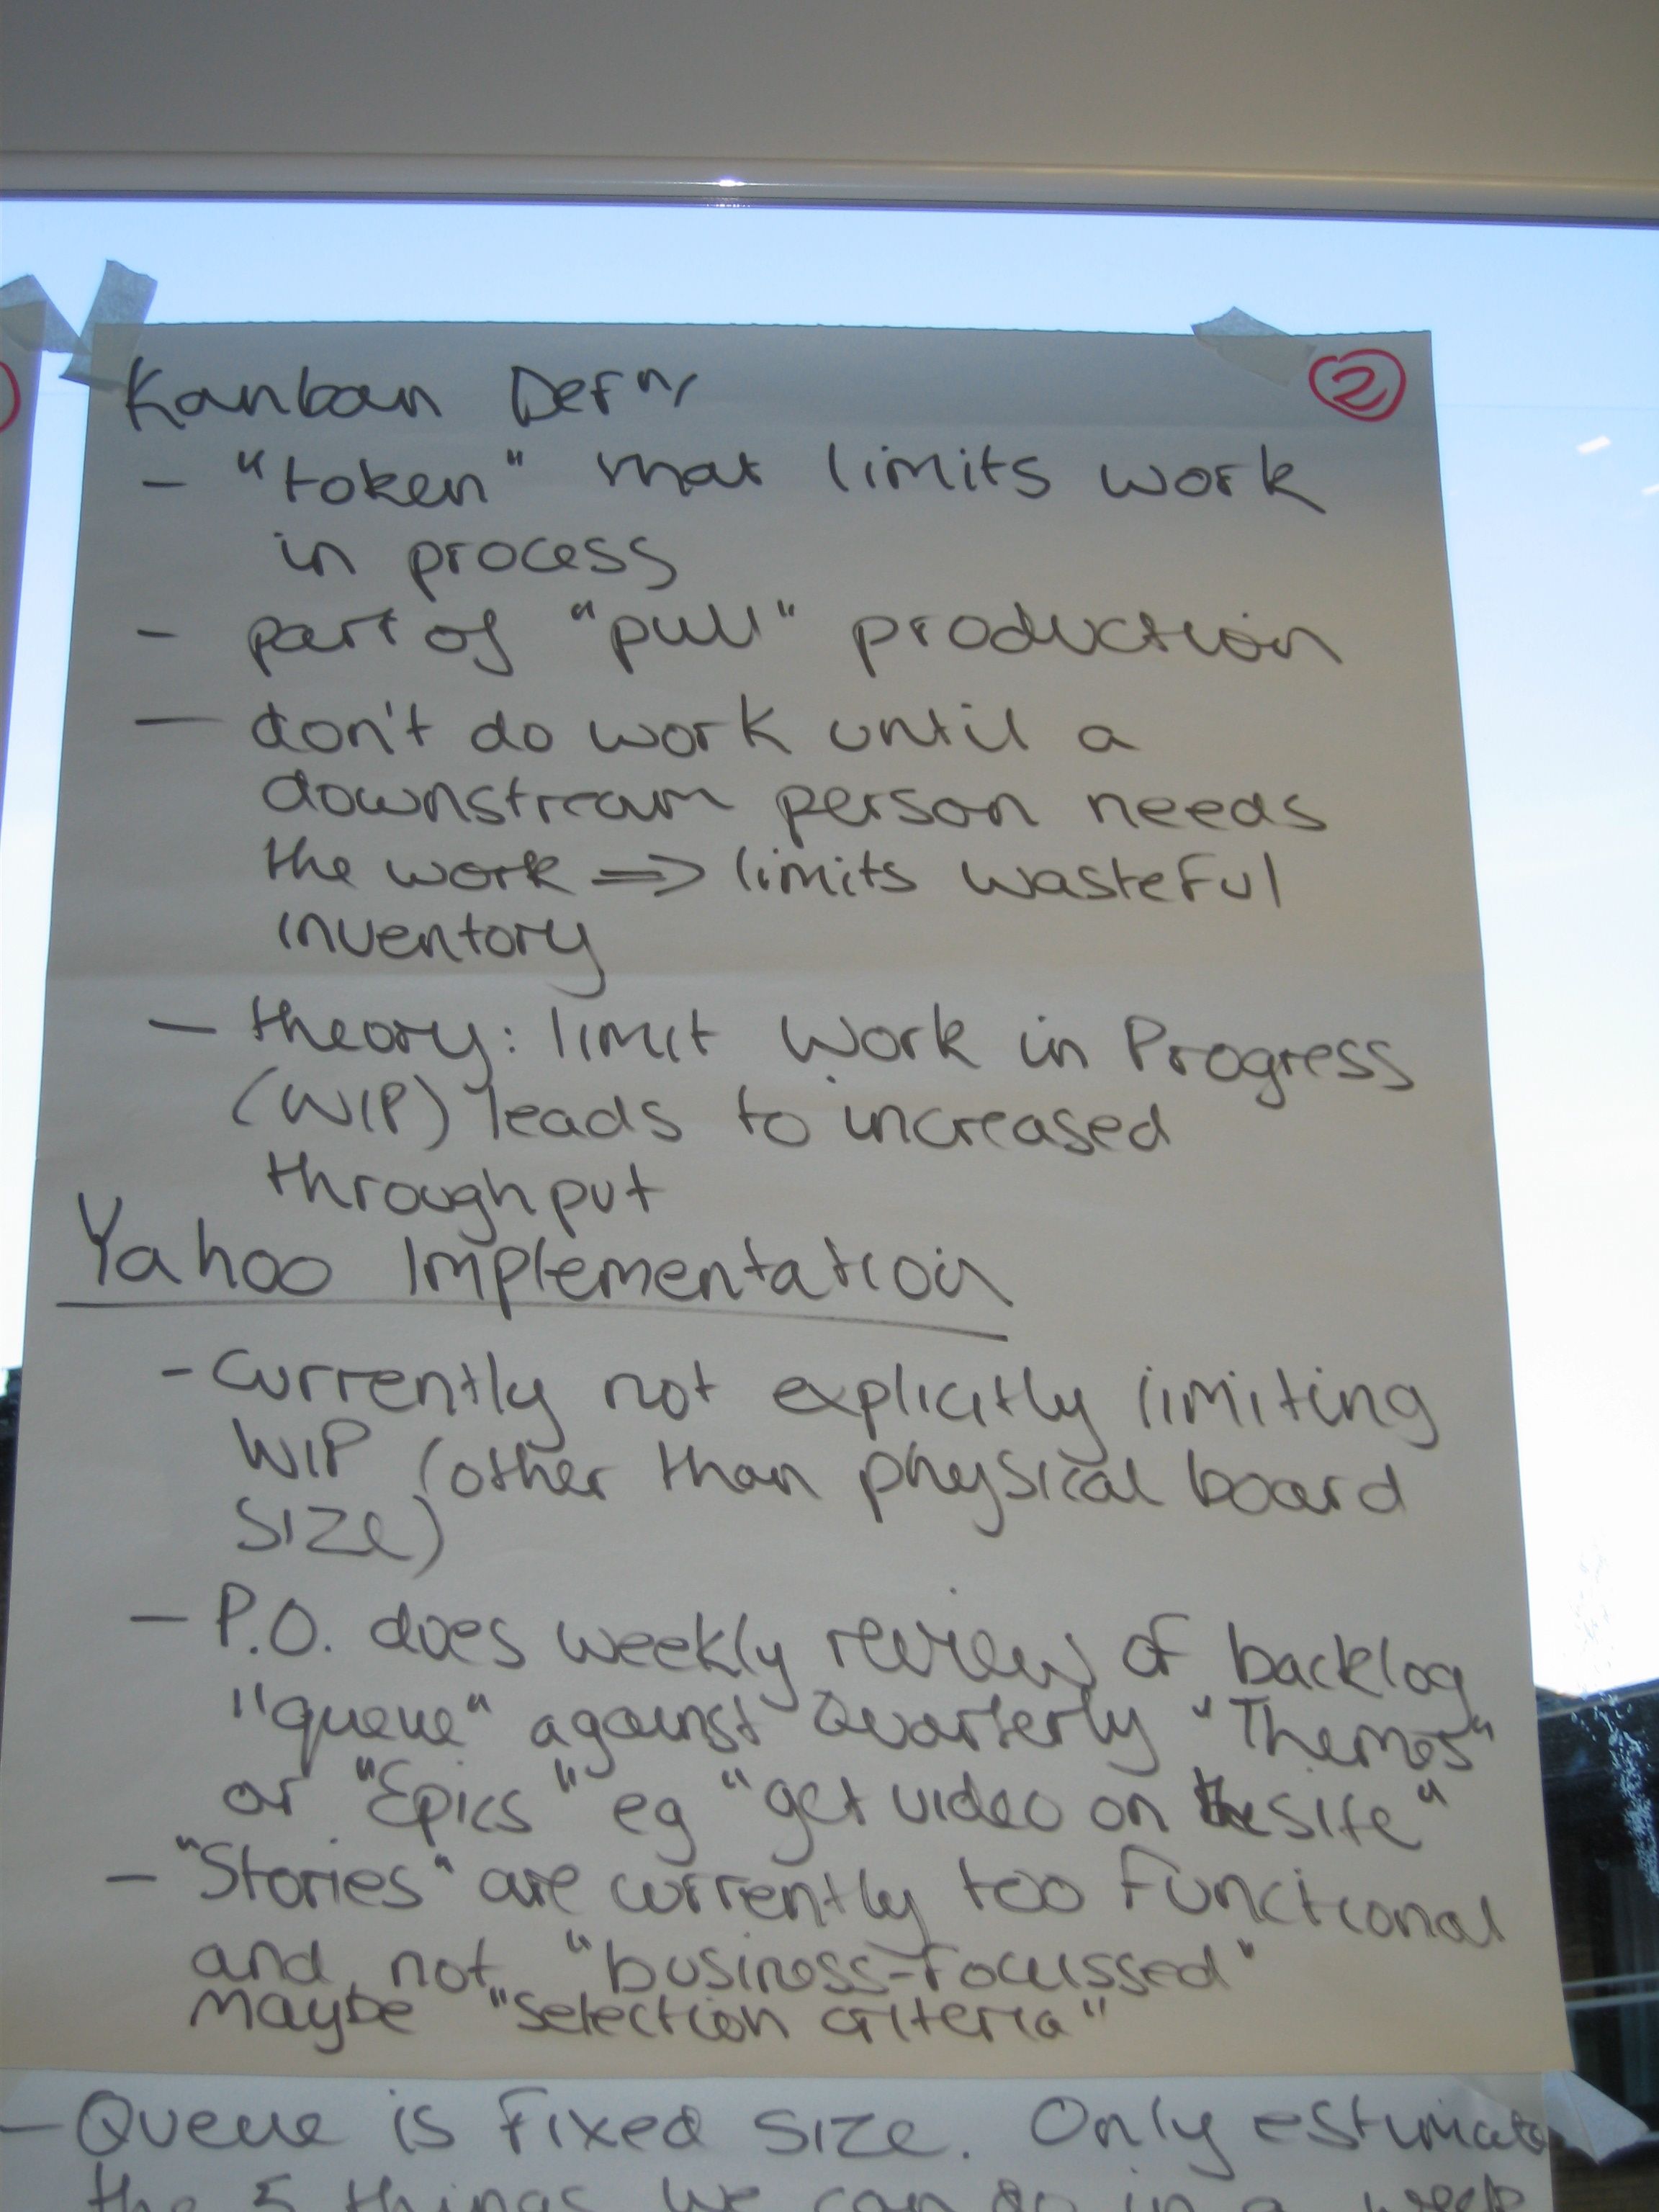 Kanban Defn,
②
- "token" that limits work
in process
- part of "pull" production
- don't do work until a
downstream person needs
the work => limits wasteful
inventory
- theory: limit Work in Progress
(WIP) leads to increased
throughput
Yahoo Implementation
- Currently not explicitly limiting
WIP (other than physical board
size)
- P.O. does weekly review of backlog
"queue" against Quarterly "Themes"
or "Epics" eg "get video on the site"
- "Stories" are currently too functional
and not "business-focussed"
Maybe "selection criteria"
- Queue is fixed size. Only estimate
the 5 things we can do in a week